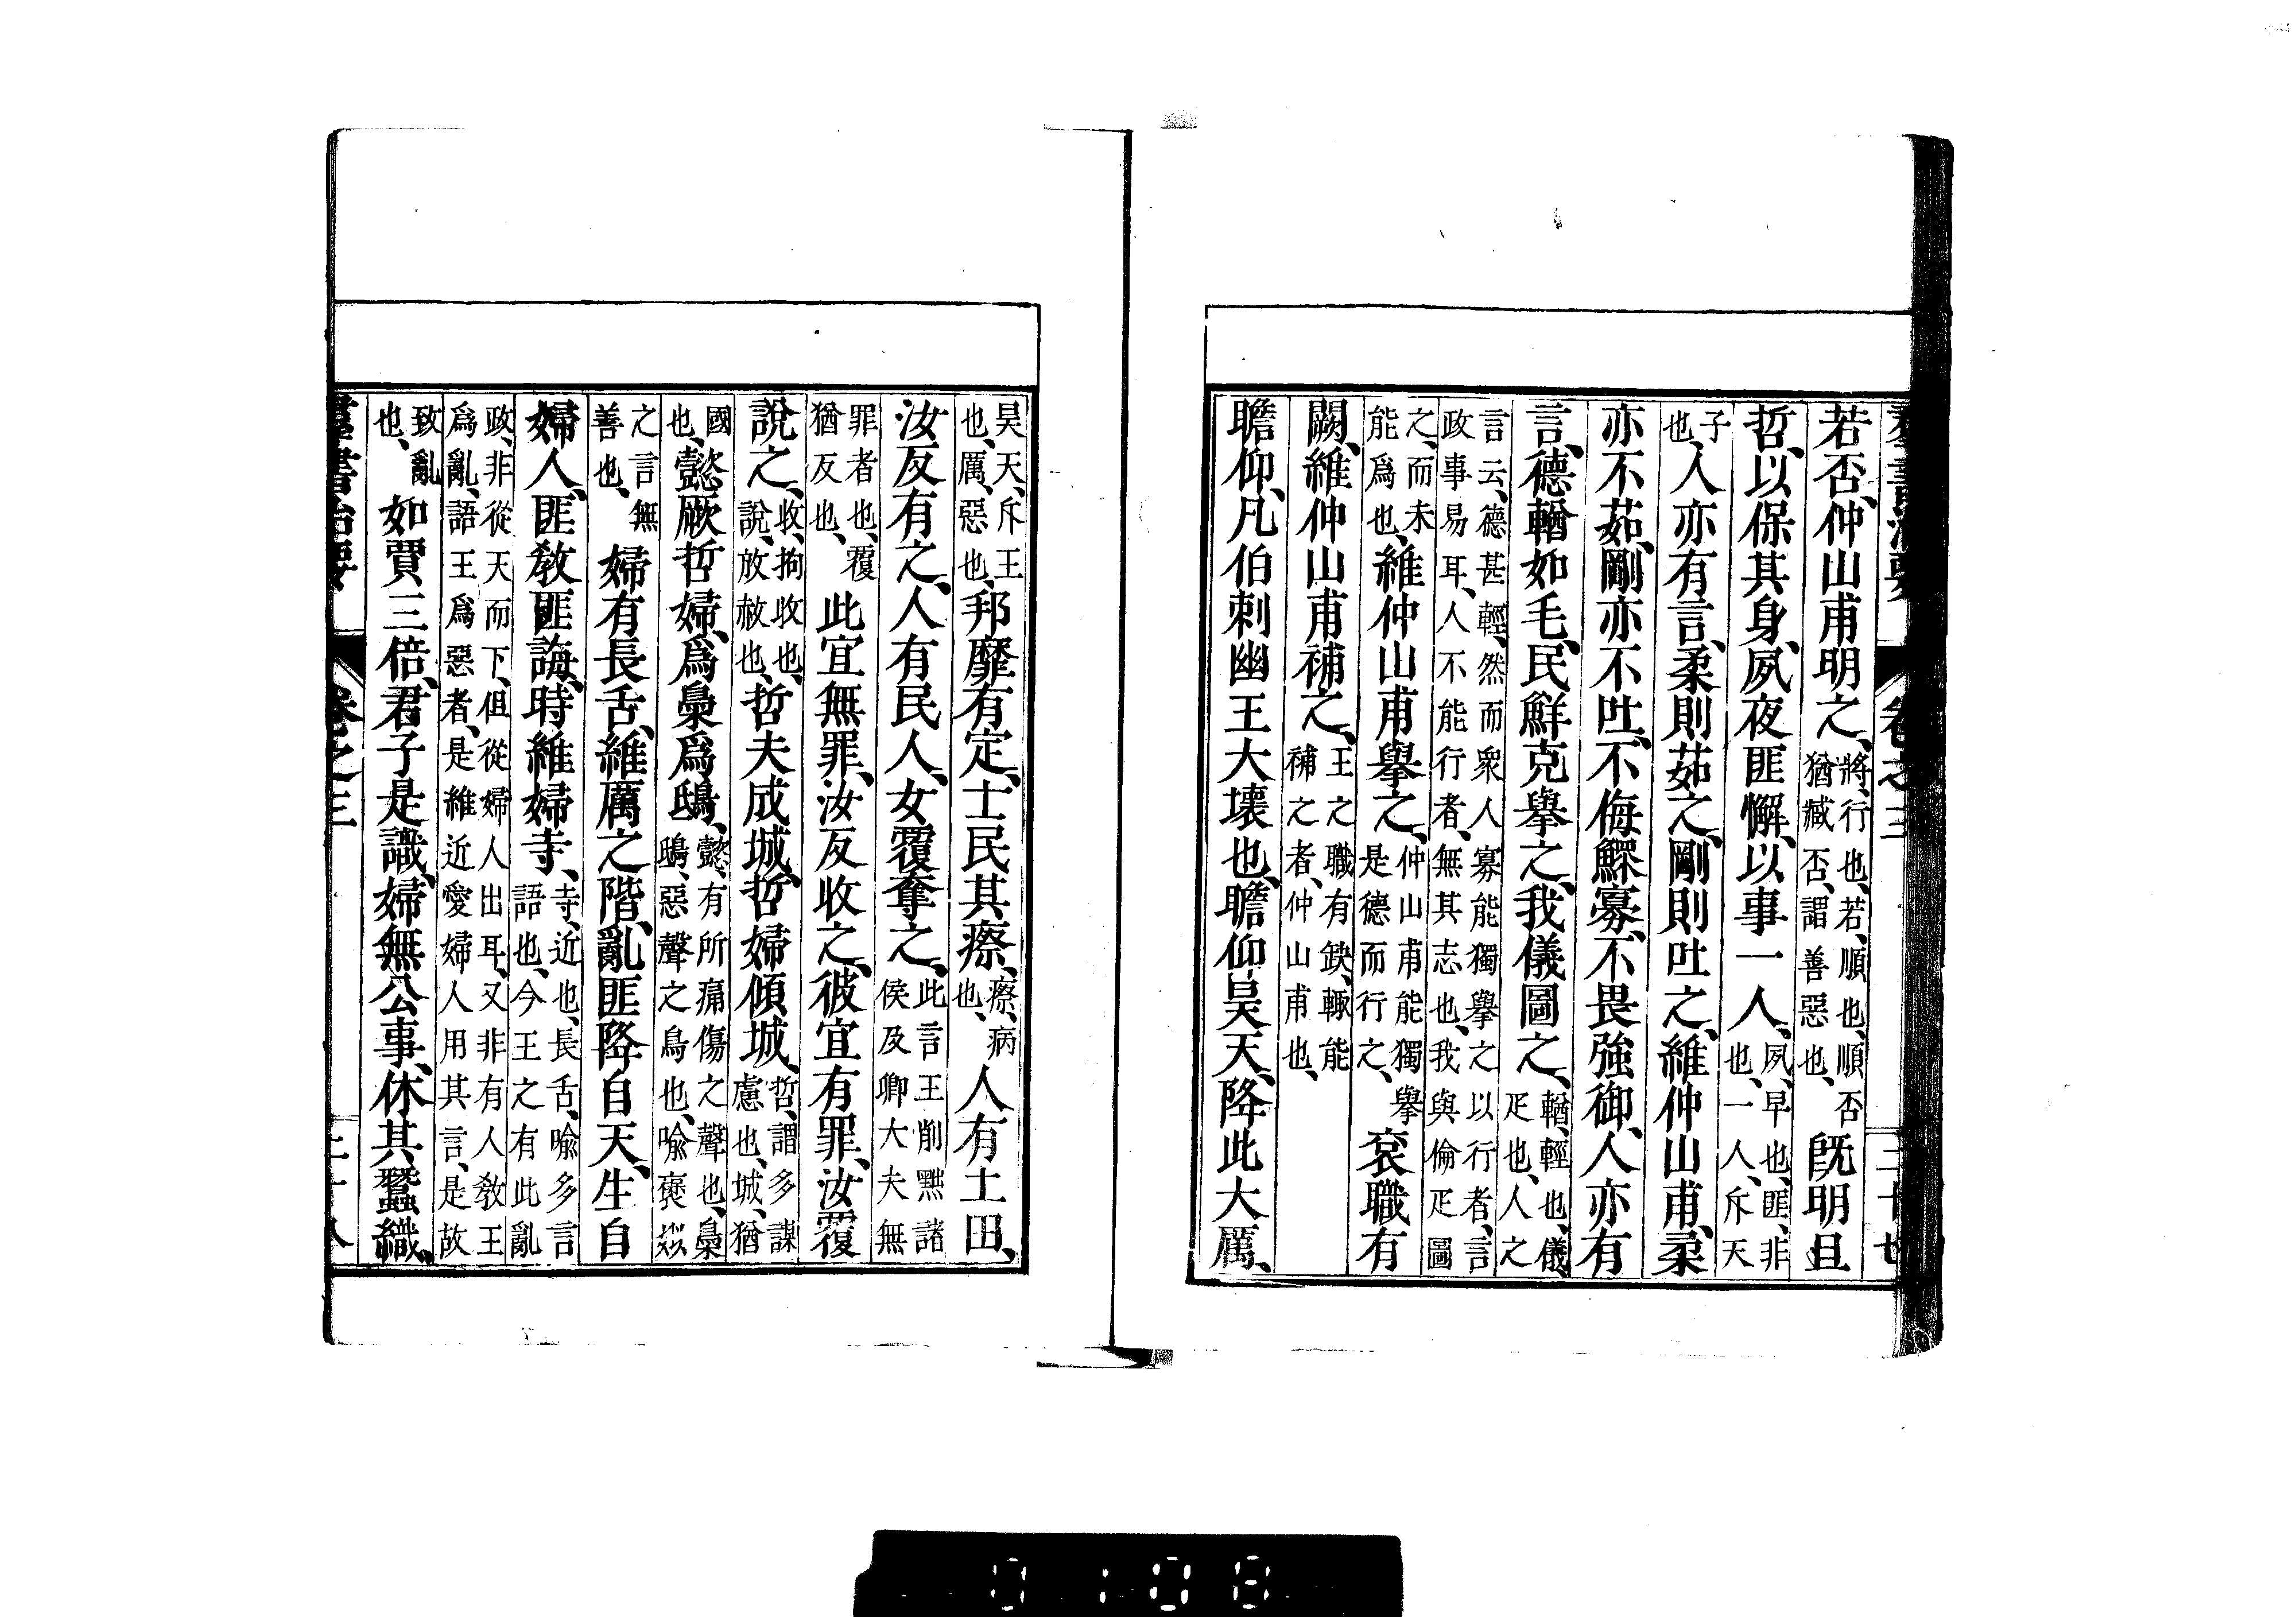 羣書治要 卷之三 三十七
若否、仲山甫明之、將、行也、若、順也、順否猶臧否、謂善惡也、旣明且
哲、以保其身、夙夜匪懈、以事一人、夙、早也、匪、非也、一人、斥天
子也、人亦有言、柔則茹之、剛則吐之、維仲山甫、柔
亦不茹、剛亦不吐、不侮鰥寡、不畏強御、人亦有
言、德輶如毛、民鮮克擧之、我儀圖之、輶、輕也、儀、疋也、人之
言云、德甚輕、然而衆人寡能獨擧之以行者、言政事易耳、人不能行者、無其志也、我與倫疋圖
之、而未能爲也、維仲山甫擧之、仲山甫能獨擧是德而行之、袞職有
闕、維仲山甫補之、王之職有缺、輙能補之者、仲山甫也、
瞻仰、凡伯刺幽王大壞也、瞻仰昊天、降此大厲、
昊天、斥王也、厲、惡也、邦靡有定、士民其瘵、瘵、病也、人有土田、
汝反有之、人有民人、女覆奪之、此言王削黜諸侯及卿大夫無
罪者也、覆猶反也、此宜無罪、汝反收之、彼宜有罪、汝覆
說之、收、拘收也、說、放赦也、哲夫成城、哲婦傾城、哲、謂多謀慮也、城、猶
國也、懿厥哲婦、爲梟爲鴟、懿、有所痛傷之聲也、梟鴟、惡聲之鳥也、喩褒姒
之言無善也、婦有長舌、維厲之階、亂匪降自天、生自
婦人、匪敎匪誨、時維婦寺、寺、近也、長舌、喩多言語也、今王之有此亂
政、非從天而下、但從婦人出耳、又非有人敎王爲亂、語王爲惡者、是維近愛婦人用其言、是故
致亂也、如賈三倍、君子是識、婦無公事、休其蠶織、
羣書治要 卷之三 三十八
0108